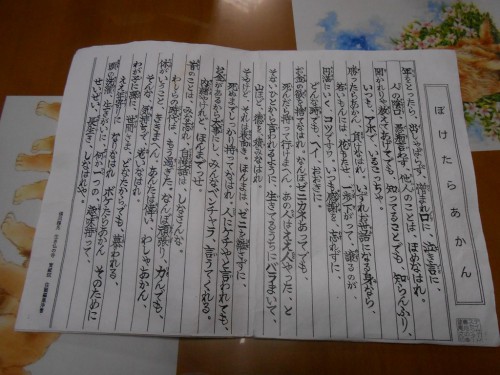 ぼけたらあかん
年をとったら 出しゃばらず、憎まれ口に、泣き言に、
人の陰口、愚痴言わず、他人のことは、ほめなはれ、
聞かれりゃ教えてあげても、知ってることでも、知らんふり、
いつも、アホで、いるこっちゃ。
勝ったらあかん、負けなはれ、いずれお世話になる身なら、
若いもんには、花もたせ、一歩さがって、譲るのが、
円満にいく、コツですわ、いつも感謝を、忘れずに、
どんな時でも、へイ、おおきに。
お金の欲を、捨てなはれ、なんぼゼニカネあってでも、
死んだら持って行けまへん、あの人はええ人やった、と
そないひとから言われるように、生きてるうちにバラまいて、
山ほど、徳を、積みなはれ。
そやけど、それは表向き、ほんまは、ゼニを、離さずに、
死ぬまでしっかり持ってなはれ、人にケチやと言われても、
お金があるから大事にし、みんな、ベンチャラ、言うてくれる、
内緒やけれど、ほんまでっせ。
昔のことは、みな忘れ、自慢話は、しなさんな、
わしらの時代は、もう過ぎた、なんぼ頑張り、力んでも、
体がいうこと、ききまへん、あんたは偉い、わしゃあかん、
そんな、気持ちで、おりなはれ。
わが子に孫に、世間さま、どなたからでも、慕われる、
ええ年寄りに、なりなはれ、ボケたらあかん、そのために
頭の洗濯、生きがいに、何か一つの、趣味持って、
せいぜい、長生き、しなはれや。